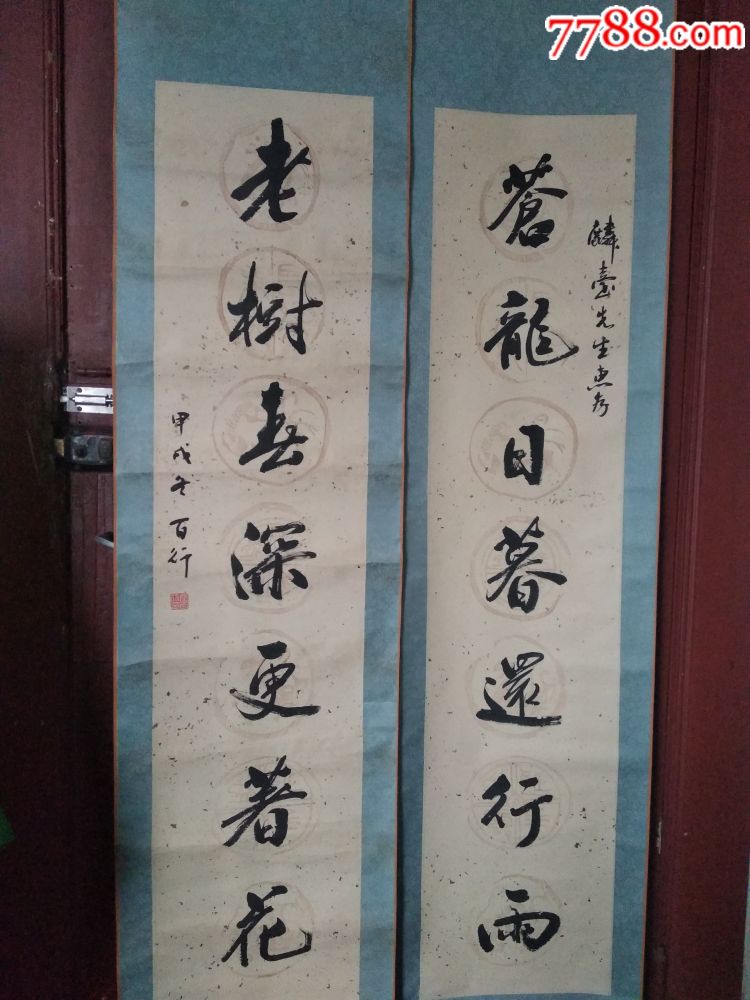 7788.com
麟臺先生惠存
蒼龍日暮還行雨
老樹春深更著花
甲戌冬 百行